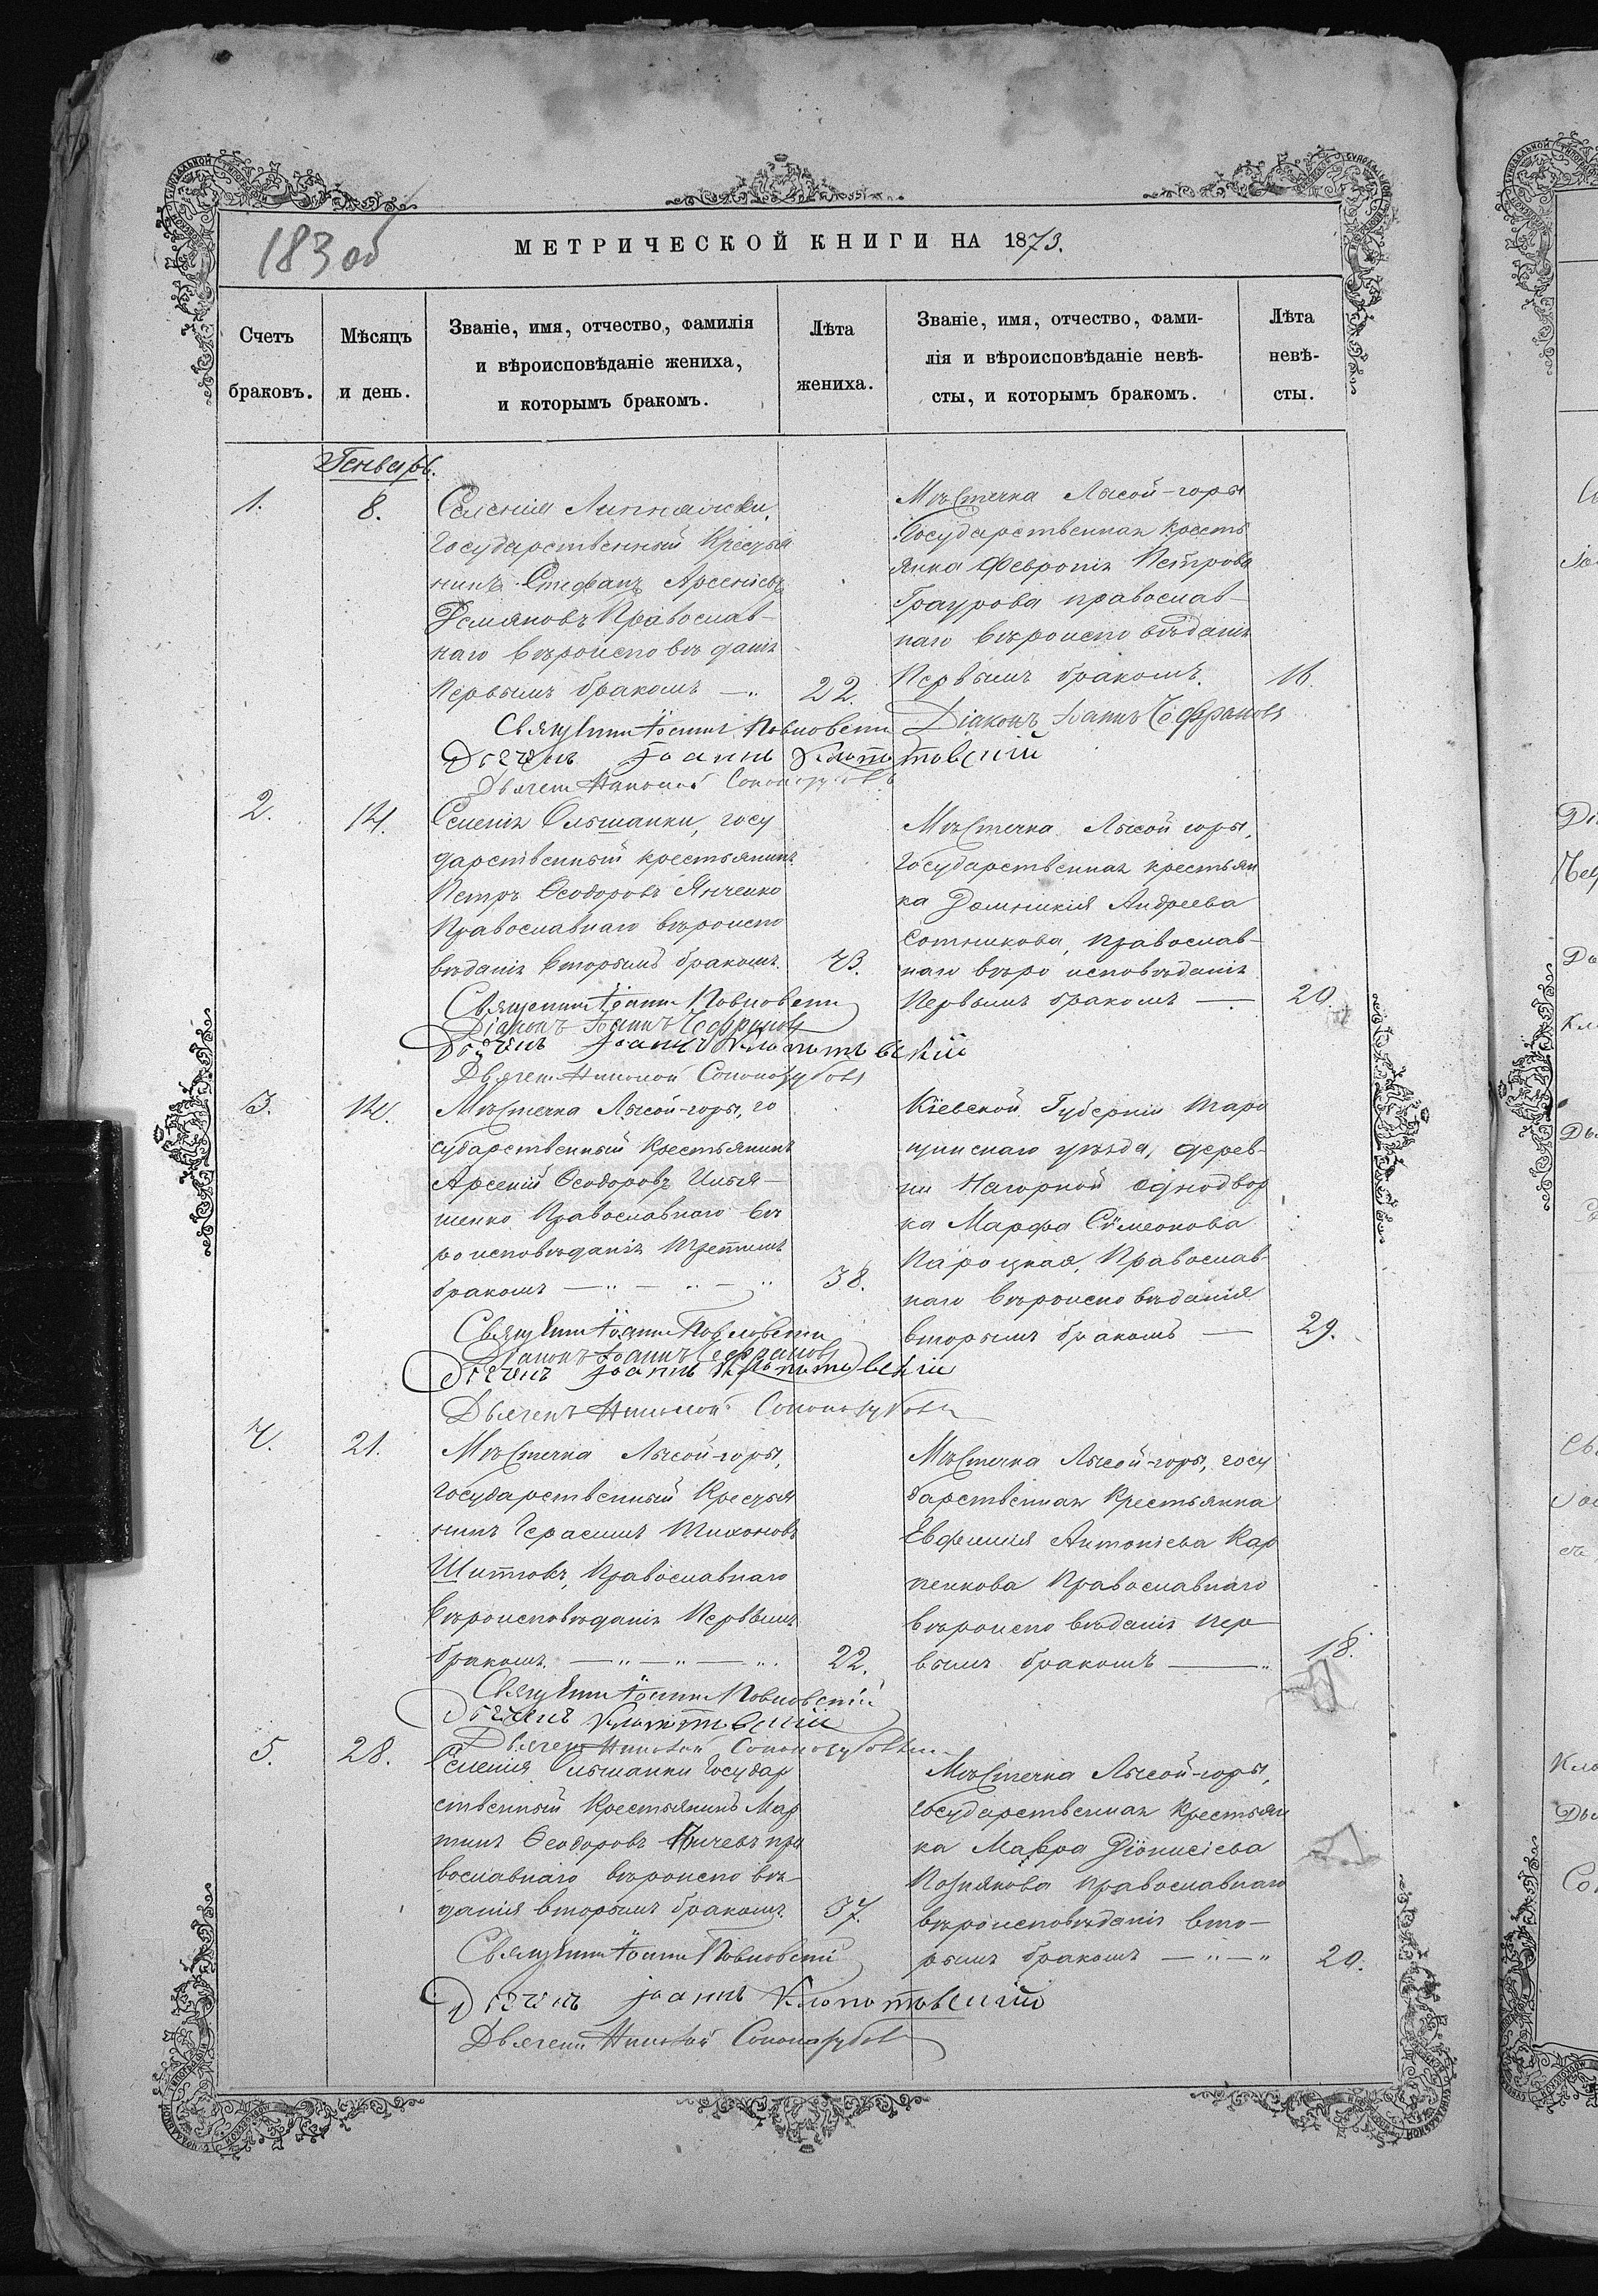 183 об
МЕТРИЧЕСКОЙ КНИГИ НА 1873.
Счетъ браковъ.
Мѣсяцъ и день.
Званіе, имя, отчество, фамилія
и вѣроисповѣданіе жениха,
и которымъ бракомъ.
Лѣта жениха.
Званіе, имя, отчество, фами-
лія и вѣроисповѣданіе невѣ-
сты, и которымъ бракомъ.
Лѣта невѣ-
сты.
Генварь.
1.
8.
Селенія Липняжки,
Государственный Крестья
нинъ Стефанъ Арсеніевъ
Демяновъ Православ-
наго вѣроисповѣданія
Первымъ бракомъ
22.
Мѣстечка Лысой-горы
Государственная кресть
янка Февронія Петрова
Граурова православ-
наго вѣроисповѣданія
Первымъ бракомъ.
16.
Діаконъ Іоаннъ
Дьячекъ Іоаннъ Клопотовскій
Дьячекъ Николай
2.
14.
Селенія Ольшанки, госу
дарственный крестьянинъ
Петръ Ѳеодоровъ Янченко
Православнаго вѣроиспо
вѣданія вторымъ бракомъ.
43.
Мѣстечка Лысой горы,
государственная крестьян
ка Домникія Андреева
Сотникова, Православ-
наго вѣроисповѣданія
Первымъ бракомъ
20.
Діаконъ Іоаннъ
Дьячекъ Іоаннъ Клопотовскій
Дьячекъ Николай
3.
14.
Мѣстечка Лысой-горы, го
сударственный Крестьянинъ
Арсеній Ѳеодоровъ Илья-
шенко Православнаго вѣ
роисповѣданія третьимъ
бракомъ
38.
Кіевской Губерніи Тара
щинскаго уѣзда, дерев-
ни Нагорной однодвор
ка Марфа Сѵмеонова
Пароцкая, Православ-
наго вѣроисповѣданія
вторымъ бракомъ
29.
Діаконъ Іоаннъ
Дьячекъ Іоаннъ Клопотовскій
Дьячекъ Николай
4.
21.
Мѣстечка Лысой-горы,
государственный Крестья
нинъ Герасимъ Тихоновъ
Шиттовъ, Православнаго
вѣроисповѣданія Первымъ
бракомъ.
22.
Мѣстечка Лысой-горы, госу
дарственная Крестьянка
Евфимія Антоніева Кар
пенкова Православнаго
вѣроисповѣданія пер
вымъ бракомъ
18.
Дьячекъ Клопотовскій
Дьячекъ Николай
5.
28.
Селенія Ольшанки Государ
ственный Крестьянинъ Мар
тинъ Ѳеодоровъ пра
вославнаго вѣроисповѣ-
данія вторымъ бракомъ.
37.
Мѣстечка Лысой-горы,
государственная крестьян
ка Мавра Діонисіева
Познякова Православнаго
вѣроисповѣданія вто-
рымъ бракомъ
20.
Дьячекъ Іоаннъ Клопотовскій
Дьячекъ Николай